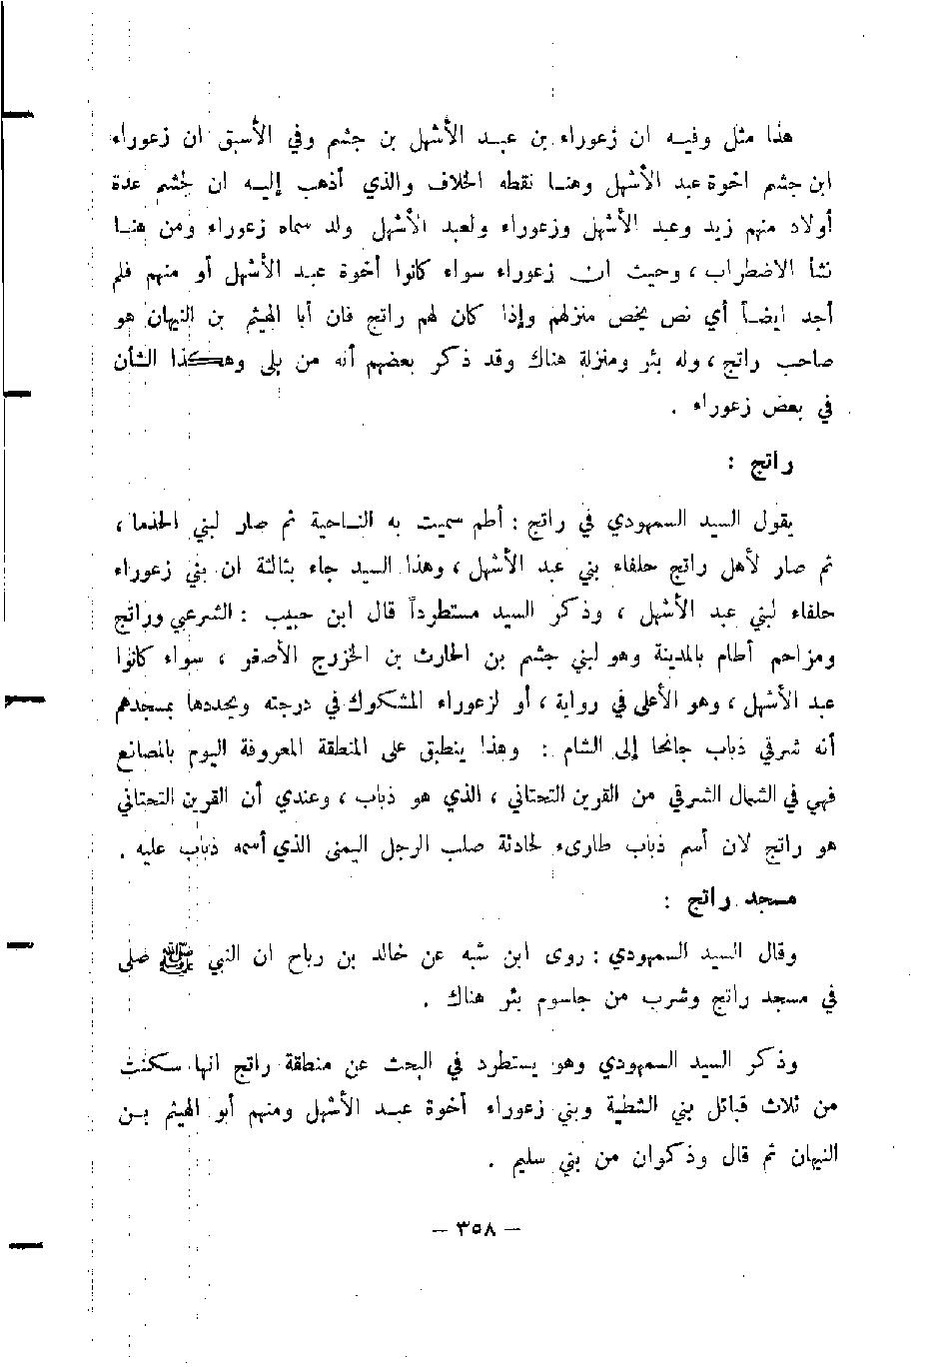 هذا مثل وفيه ان زعوراء بن عبد الأشهل بن جشم وفي الأسبق ان زعوراء
ابن جشم اخوة عبد الأشهل وهنا نقطه الخلاف والذي أذهب إليه ان لجشم عدة
أولاد منهم زيد وعبد الأشهل وزعوراء ولعبد الأشهل ولد سماه زعوراء ومن هنا
نشأ الاضطراب ، وحيث ان زعوراء سواء كانوا أخوة عبد الأشهل أو منهم فلم
أجد ايضاً أي نص يخص منزلهم وإذا كان لهم راتج فان أبا الهيثم بن النيهان هو
صاحب راتج ، وله بئر ومنزلة هناك وقد ذكر بعضهم أنه من بلى وهكذا الشأن
في بعض زعوراء .
راتج :
يقول السيد السمهودي في راتج : أطم سميت به الناحية ثم صار لبني الجذما ،
ثم صار لأهل راتج حلفاء بني عبد الأشهل ، وهذا السيد جاء بثالثة ان بني زعوراء
حلفاء لبني عبد الأشهل ، وذكر السيد مستطرداً قال ابن حبيب : الشرعبي وراتج
ومزاحم أطام بالمدينة وهو لبني جشم بن الحارث بن الخزرج الأصغر ، سواء كانوا
عبد الأشهل ، وهو الأعلى في رواية ، أو لزعوراء المشكوك في درجته ويحددها بمسجدهم
أنه شرقي ذباب جانحا إلى الشام : وهذا ينطبق على المنطقة المعروفة اليوم بالمصانع
فهي في الشمال الشرقي من القرين التحتاني ، الذي هو ذباب ، وعندي أن القرين التحتاني
هو راتج لان أسم ذباب طارىء لحادثة صلب الرجل اليمنى الذي أسمه ذباب عليه .
مسجد راتج :
وقال السيد السمهودي : روى ابن شبه عن خالد بن رباح ان النبي ﷺ صلى
في مسجد راتج وشرب من جاسوم بئر هناك .
وذكر السيد السمهودي وهو يستطرد في البحث عن منطقة راتج انها سكنت
من ثلاث قبائل بني الشطية وبني زعوراء أخوة عبد الأشهل ومنهم أبو الهيثم بن
النيهان ثم قال وذكوان من بني سليم .
– ٣٥٨ –